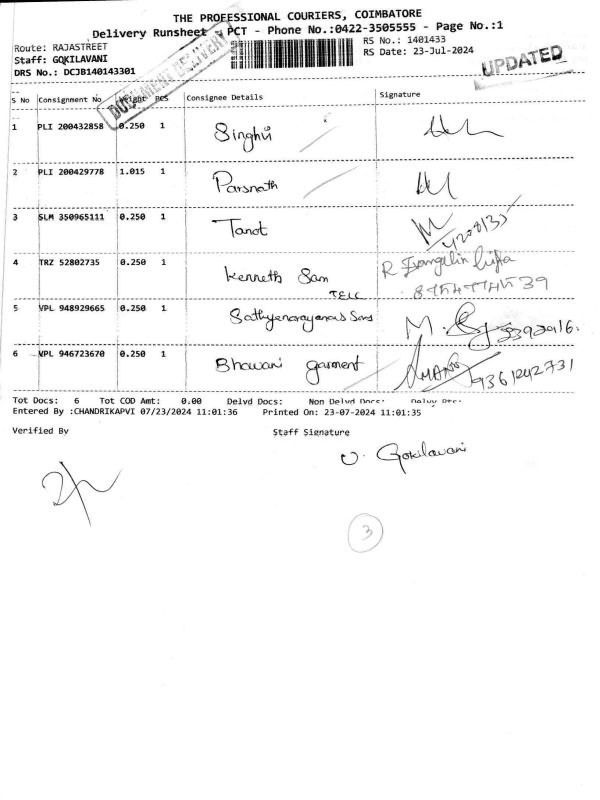 THE PROFESSIONAL COURIERS, COIMBATORE
Delivery Runsheet - PCT - Phone No.:0422-3505555 - Page No.:1
Route: RAJASTREET
Staff: GOKILAVANI
DRS No.: DCJB140143301
RS No.: 1401433
RS Date: 23-Jul-2024
DOCUMENT DELIVERY
UPDATED
S No Consignment No Weight PCS Consignee Details Signature
1 PLI 200432858 0.250 1 Singhvi
2 PLI 200429778 1.015 1 Parsnath
3 SLM 350965111 0.250 1 Tanot
4 TRZ 52802735 0.250 1 Kenneth Sam
TELC
5 VPL 948929665 0.250 1 Sathyanarayanas Sons M.
6 VPL 946723670 0.250 1 Bhawani garment 9361242731
Tot Docs: 6 Tot COD Amt: 0.00 Delvd Docs: Non Delvd Docs:
Entered By :CHANDRIKAPVI 07/23/2024 11:01:36 Printed On: 23-07-2024 11:01:35
Verified By Staff Signature
V. Gokilavani
3